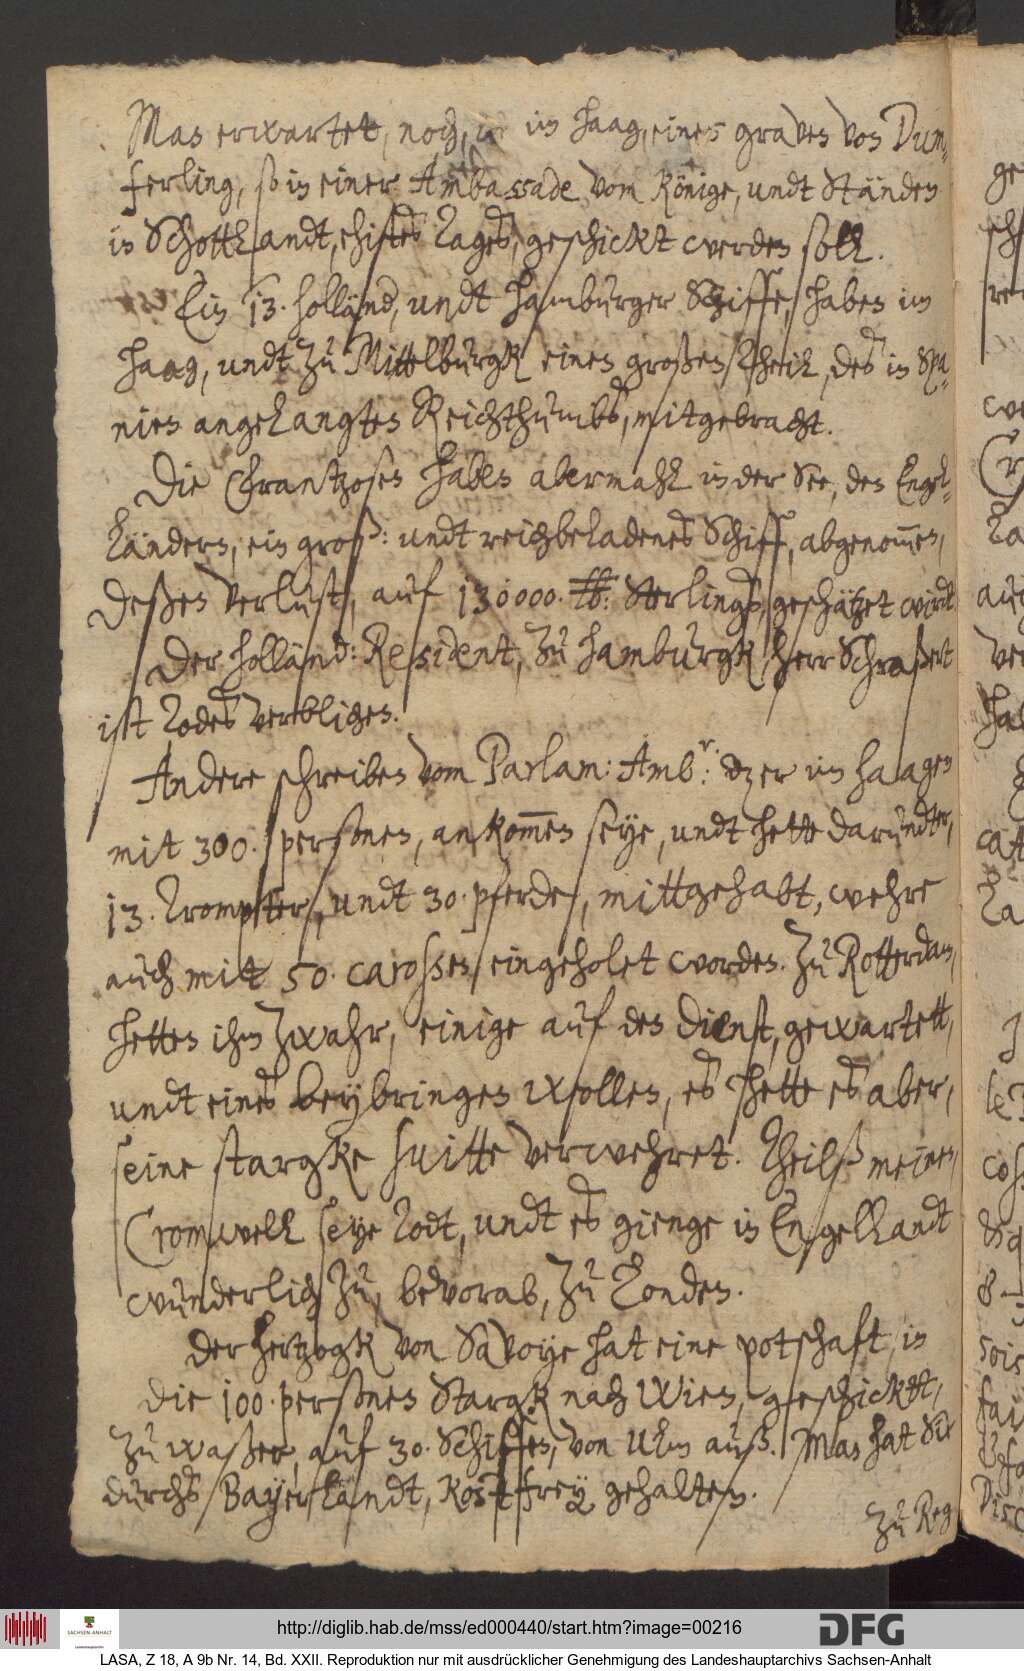 Man erwartet, noch, im Haag, einen graven von Dum-
ferling, so in einer Ambassade vom Könige, undt Ständen
in Schottlandt, ehistes Tages, geschickt werden soll.
Ein 13. holländ, undt Hamburger Schiffe, haben im
Haag, undt zu Mittelburgk einen großen Theil, des in Spa-
nien angelangten Reichthumbs, mitgebracht.
Die Frantzosen haben abermahl in der See, den Engel-
ländern, ein groß: undt reichbeladenes Schiff, abgenommen,
deßen verlust, auf 130000. lb: Sterlings, geschätzet wirdt
Der holländ: Resident, zu hamburgk, herr Schraßert
ist Todes verblichen.
Andere schreiben vom Parlam: Ambr: dz er im Haagen
mit 300. personen, ankommen seye, undt hette darundter,
13. Trompter, undt 30. pferde, mittgehabt, wehre
auch mit 50. carossen eingeholet worden. Zu Rotterdam,
hetten ihm zwahr, einige auf den dienst, gewartett,
undt eines beybringen wollen, es hette es aber,
seine stargke suitte verwehret. Theilß meinen,
Cromwell seye Todt, undt es gienge in Engellandt
wunderlich zu, bevorab, zu Londen.
Der hertzogk von Savoye hat eine potschaft, in
die 100. personen Stargk nach Wien, geschicktt,
zu waßer, auf 30. Schiffen, von Ulm auß. Man hat Sie
durchs Bayerlandt, Kostfrey gehalten.
Zu Reg
http://diglib.hab.de/mss/ed000440/start.htm?image=00216
SACHSEN-ANHALT
DFG
LASA, Z 18, A 9b Nr. 14, Bd. XXII. Reproduktion nur mit ausdrücklicher Genehmigung des Landeshauptarchivs Sachsen-Anhalt